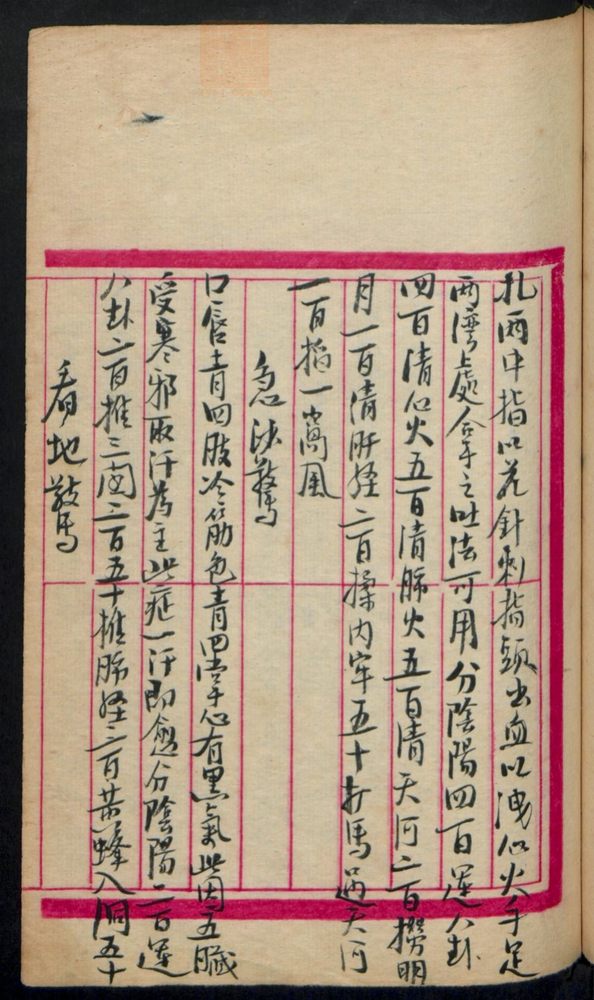 扎兩中指以羌針刺指頭出血以洩心火手足
兩灣處合手之吐法可用分陰陽四百運八卦
四百清心火五百清肺火五百清天河二百撈明
月一百清肝經二百揉內牢五十打馬過天河
一百掐一窩風
急沙驚
口唇青四肢冷筋色青四掌心有黑氣此因五臟
受寒邪取汗為主此症一汗即愈分陰陽二百運
八卦二百推三関二百五十推肺經二百黄蜂入洞五十
看地驚